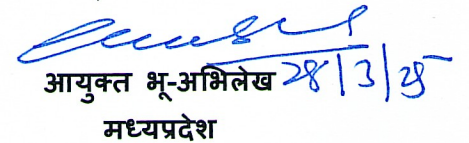 आयुक्त भू-अभिलेख 28/3/25
मध्यप्रदेश